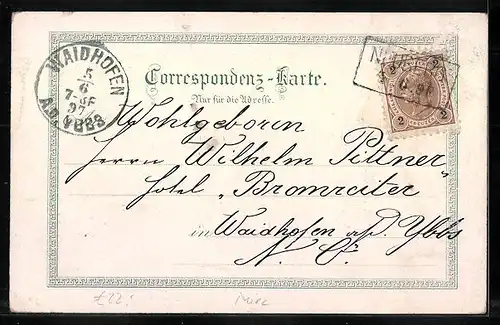 WAIDHOFEN
5
6
97
A.D. YBBS
Correspondenz-Karte.
Nur für die Adresse.
2 2
2 2
Wohlgeboren
Herrn Wilhelm Pittner
Hotel „Bromreiter"
in Waidhofen a/d. Ybbs
N. Ö.
£22.